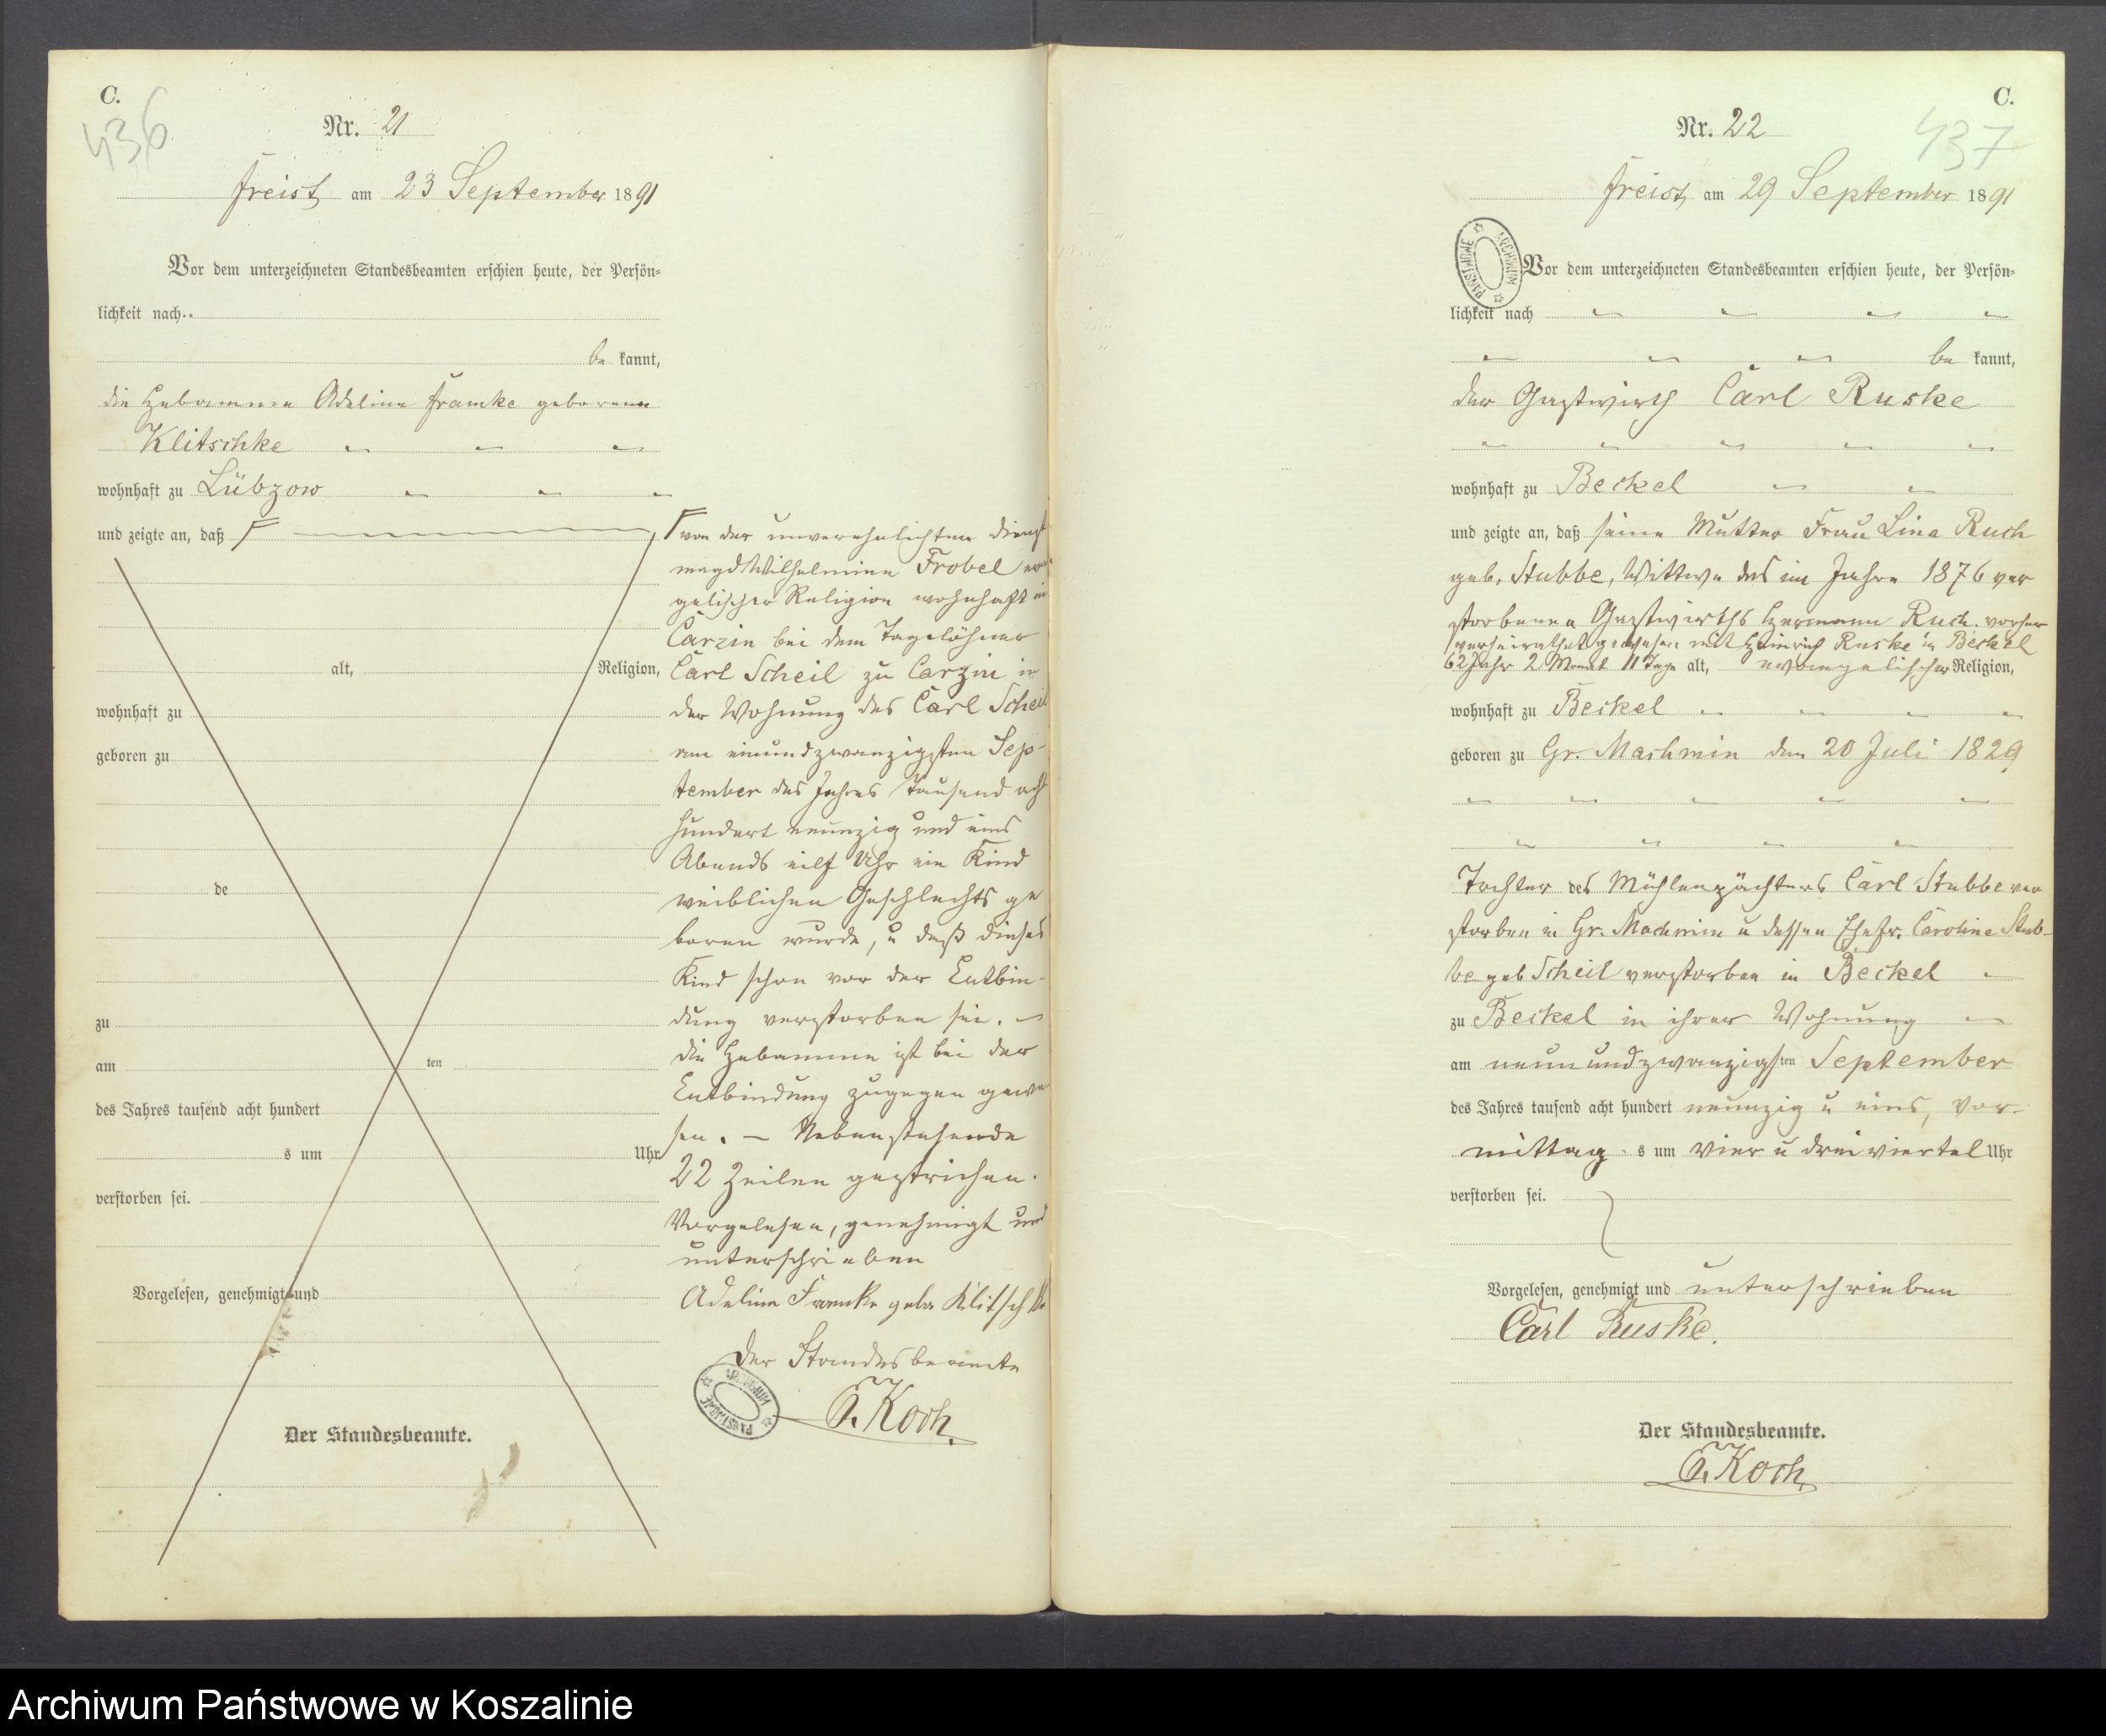 C.
436
Nr. 21
Freist am 23 September 1891
Vor dem unterzeichneten Standesbeamten erschien heute, der Persön=
lichkeit nach
be kannt,
die Hebamme Adeline Framke geborene
Klitschke
wohnhaft zu Lübzow
und zeigte an, daß
alt, Religion,
wohnhaft zu
geboren zu
de
zu
am ten
des Jahres tausend acht hundert
s um Uhr
verstorben sei.
Vorgelesen, genehmigt und
Der Standesbeamte.
von der unverehelichten Dienst
magd Wilhelmine Frobel evan
gelischer Religion wohnhaft in
Carzin bei dem Tagelöhner
Carl Scheil zu Carzin in
der Wohnung des Carl Scheil
am einundzwanzigsten Sep-
tember des Jahres tausend acht
hundert neunzig und eins
Abends eilf Uhr ein Kind
weiblichen Geschlechts ge
boren wurde, u daß dieses
Kind schon vor der Entbin-
dung verstorben sei. -
die Hebamme ist bei der
Entbindung zugegen gewe
sen. - Nebenstehende
22 Zeilen gestrichen.
Vorgelesen, genehmigt und
unterschrieben
Adeline Framke geb Klitschke
Der Standesbeamte
Koch.
ARCHIWUM PAŃSTWOWE
C.
437
Nr. 22
Freist am 29 September 1891
ARCHIWUM PAŃSTWOWE
Vor dem unterzeichneten Standesbeamten erschien heute, der Persön=
lichkeit nach
be kannt,
der Gastwirth Carl Ruske
wohnhaft zu Beckel
und zeigte an, daß seine Mutter Frau Lina Ruch
geb. Stubbe, Wittwe des im Jahre 1876 ver
storbenen Gastwirths Hermann Ruch. vorher
verheirathet gewesen mit Heinrich Ruske in Beckel
62 Jahr 2 Monat 11 Tage alt, evangelischer Religion,
wohnhaft zu Beckel
geboren zu Gr. Machmin den 20 Juli 1829
Tochter des Mühlenpächters Carl Stubbe ver
storben in Gr. Machmin u dessen Ehefr. Caroline Stub-
be geb Scheil verstorben in Beckel
zu Beckel in ihrer Wohnung
am neunundzwanzigsten September
des Jahres tausend acht hundert neunzig u eins, Vor-
mittag s um vier u dreiviertel Uhr
verstorben sei.
Vorgelesen, genehmigt und unterschrieben
Carl Ruske.
Der Standesbeamte.
Koch
Archiwum Państwowe w Koszalinie